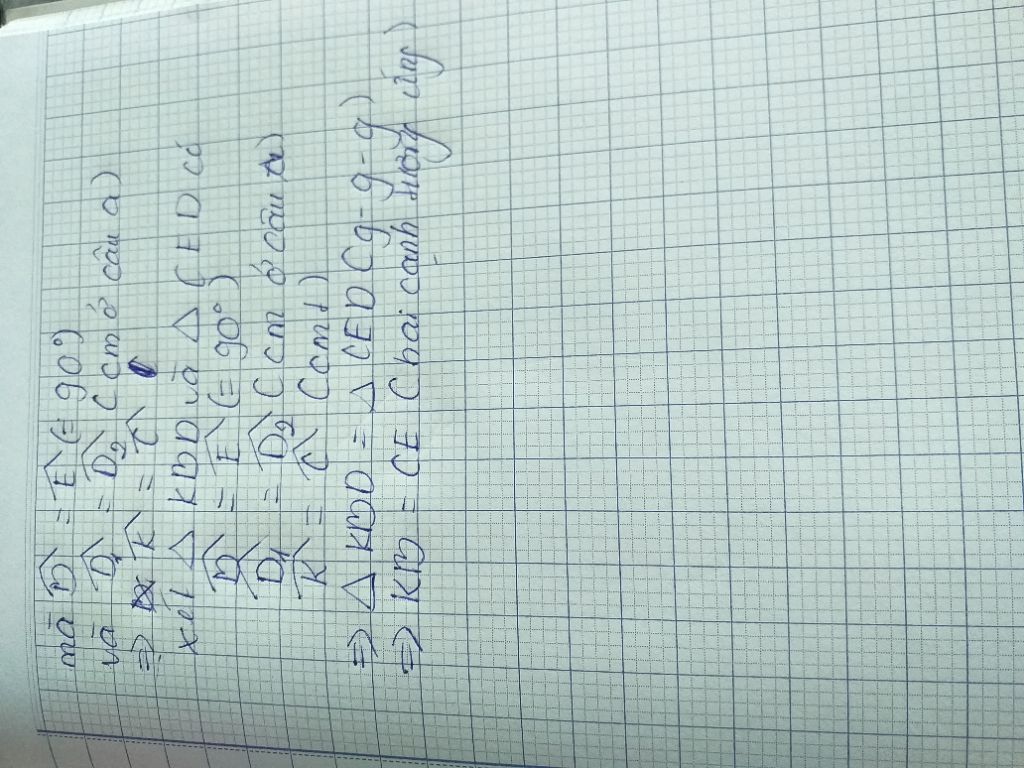 mà B̂ = Ê (= 90°)
và D̂₁ = D̂₂ (cm ở câu a)
⇒ K̂ = Ĉ
xét △ KBD và △ CED có
B̂ = Ê (= 90°)
D̂₁ = D̂₂ (cm ở câu a)
K̂ = Ĉ (cmt)
⇒ △ KBD = △ CED (g-g-g)
⇒ KB = CE (hai cạnh tương ứng)